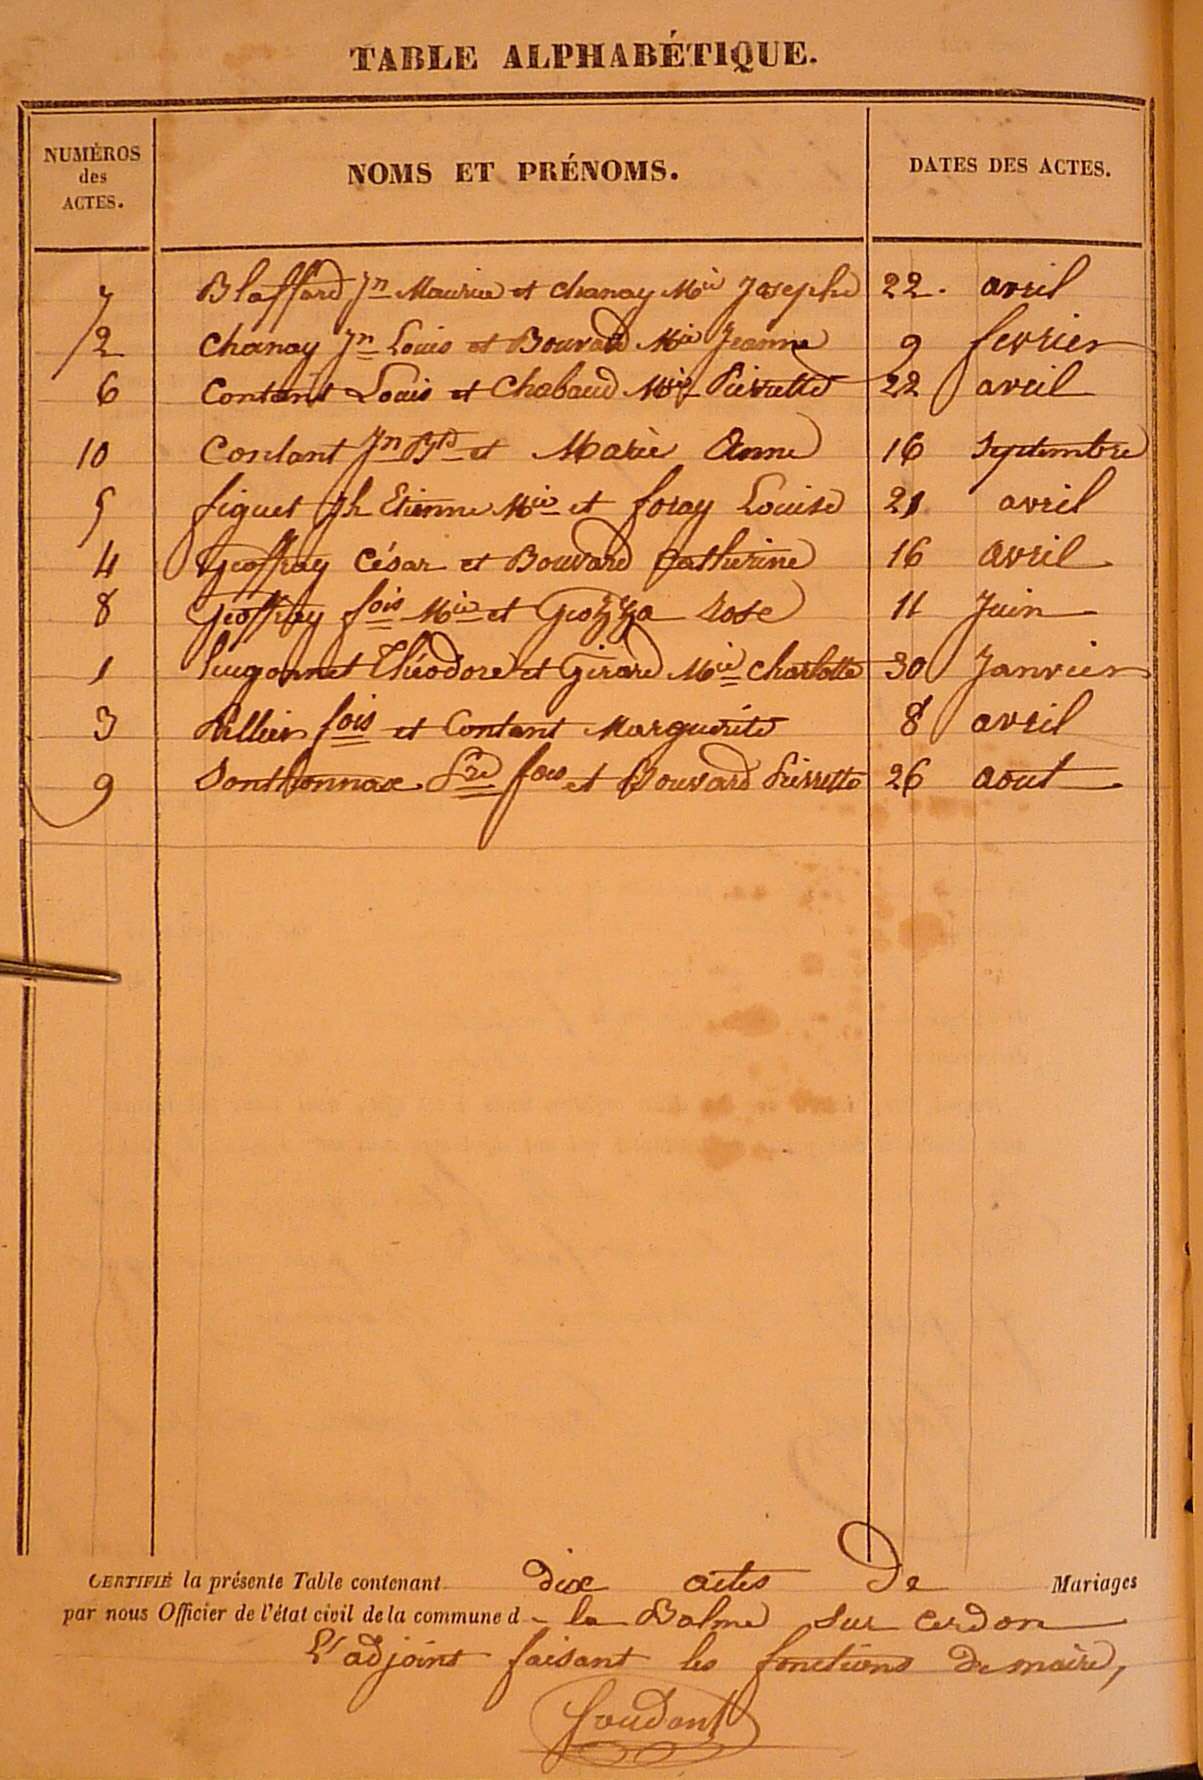 TABLE ALPHABÉTIQUE.
NUMÉROS des ACTES. NOMS ET PRÉNOMS. DATES DES ACTES.
7 Blaffard Jn Maurice et chanay Mie Josephe 22. avril
2 chanay Jn Louis et Bouvard Mie Jeanne 9 fevrier
6 Contant Louis et Chabaud Mie Pierrette 22 avril
10 Contant Jn Bte et Marie Anne 16 Septembre
5 figuet Jh Etienne Mie et foray Louise 21 avril
4 Geoffray César et Bouvard Catherine 16 avril
8 Geoffray fois Mie et Gozza Rose 11 Juin
1 hugonnet Théodore et Girard Mie Charlotte 30 Janvier
3 fois et Contant Marguerite 8 avril
9 Sonthonnax fois et Bouvard Pierrette 26 aout
CERTIFIÉ la présente Table contenant dix actes De Mariages
par nous Officier de l'état civil de la commune d la Balme sur cerdon
L'adjoint faisant les fonctions de maire,